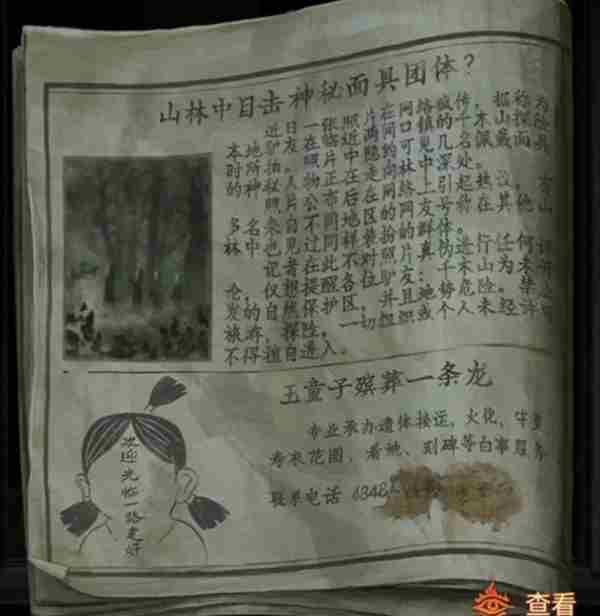 山林中目击神秘面具团体?
近日一张照片在网络疯传,据称为
本地驴友在临近 口镇的千木山探险
时所拍。照片中隐约可见几名佩戴面具
的神秘人物 走向林中深处。
照片公布后在网路上引起热议,有
多名来自不同地区的网友号称在其他山
林中也见过同样装扮的群体。
记者在此不对照片真伪进行任何评
论,仅想提醒各位驴友:千木山为未
发的自然保护区,并且地势危险。禁
旅游、探险。一切组织或个人未经许
不得擅自进入。
五童子殡葬一条龙
专业承办遗体接运,火化,
寿衣花圈,看地、刻碑等白事服务
联系电话 6348
欢迎光临一路走好
查看